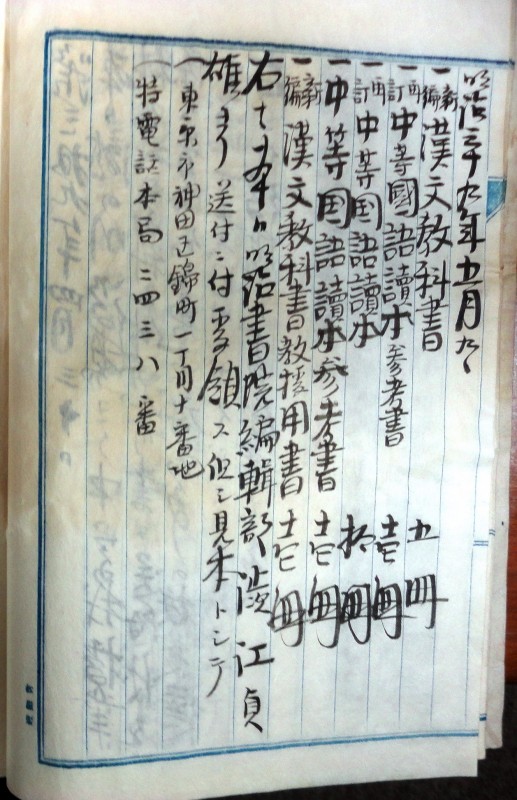 明治三十九年五月九日
一新編漢文教科書 五冊
一再訂中等國語讀本參考書 壱冊
一再訂中等国語讀本 拾冊
一中等国語讀本参考書 壱冊
一新編漢文教科書教授用書 壱冊
右ハ本日明治書院編輯部澁江貞
雄ヨリ送付ニ付受領ス但シ見本トシテ
(東京市神田区錦町一丁目十番地
(特電話本局二四三八番